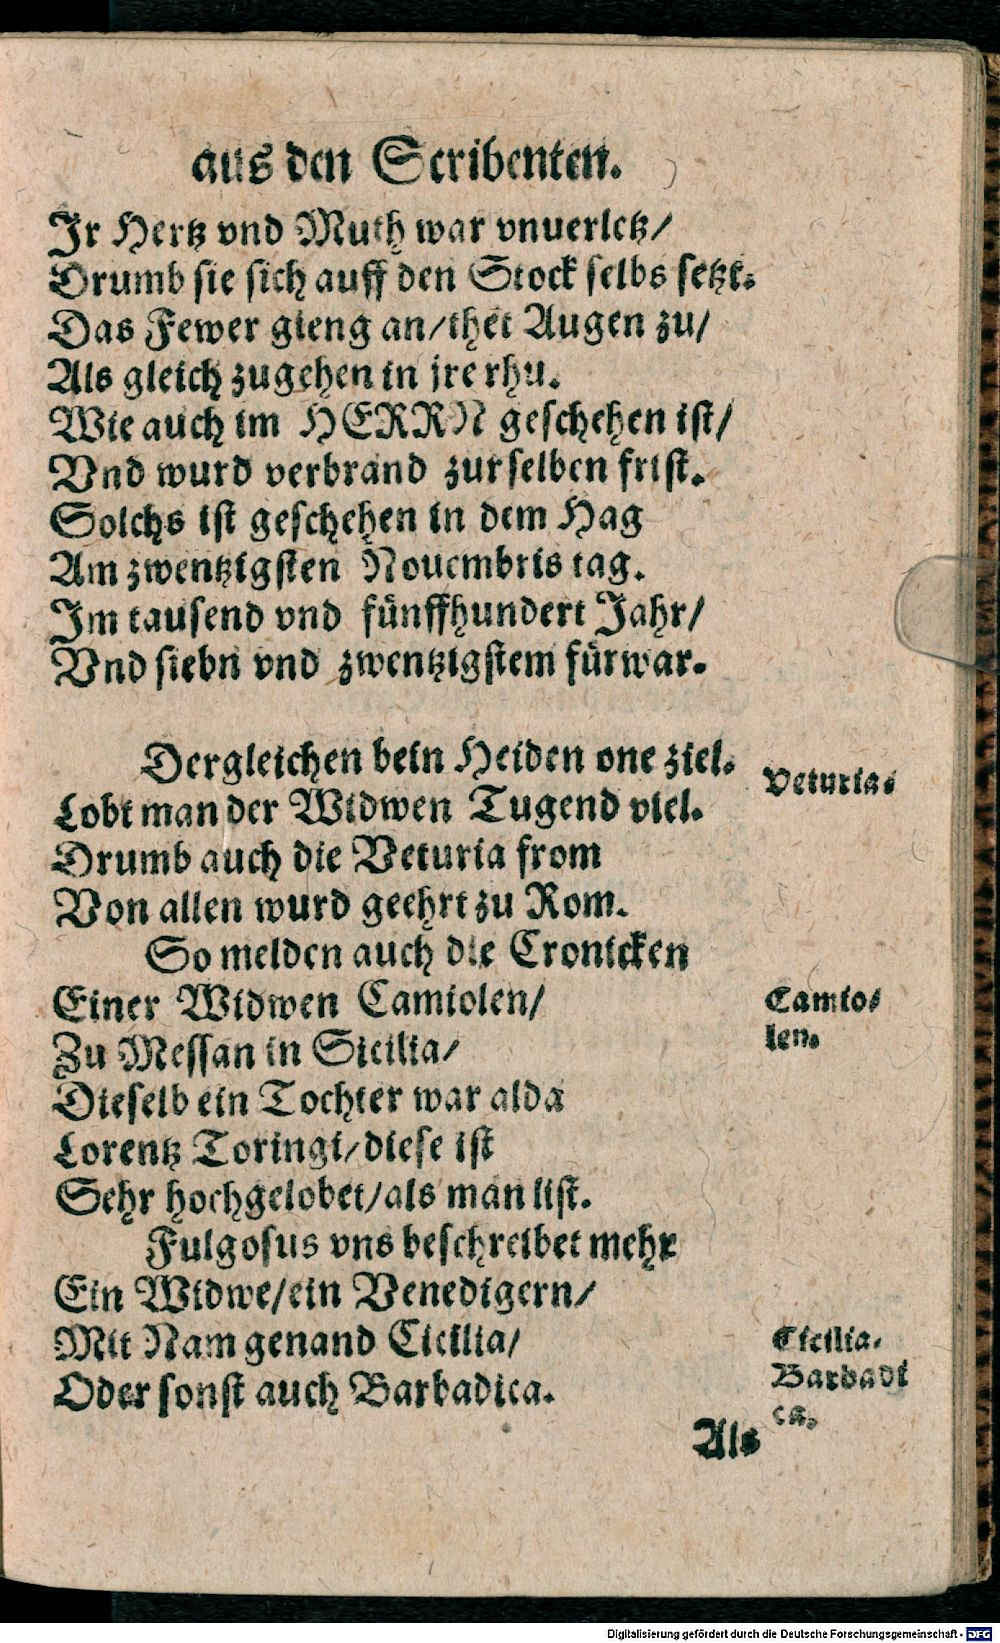 aus den Scribenten.
Jr Hertz vnd Muth war vnuerletz/
Drumb sie sich auff den Stock selbs setzt.
Das Fewer gieng an/thet Augen zu/
Als gleich zugehen in jre rhu.
Wie auch im HERRN geschehen ist/
Vnd wurd verbrand zur selben frist.
Solchs ist geschehen in dem Hag
Am zwentzigsten Nouembris tag.
Im tausend vnd fünffhundert Jahr/
Vnd siebn vnd zwentzigstem fürwar.
Dergleichen bein Heiden one ziel.
Veturia.
Lobt man der Widwen Tugend viel.
Drumb auch die Veturia from
Von allen wurd geehrt zu Rom.
So melden auch die Cronicken
Einer Widwen Camiolen/
Camio-
len.
Zu Messan in Sicilia/
Dieselb ein Tochter war alda
Lorentz Toringi/diese ist
Sehr hochgelobet/als man list.
Fulgosus vns beschreibet mehr
Ein Widwe/ein Venedigern/
Mit Nam genand Cicilia/
Cicilia.
Barbadi
ca.
Oder sonst auch Barbadica.
Als
Digitalisierung gefördert durch die Deutsche Forschungsgemeinschaft - DFG